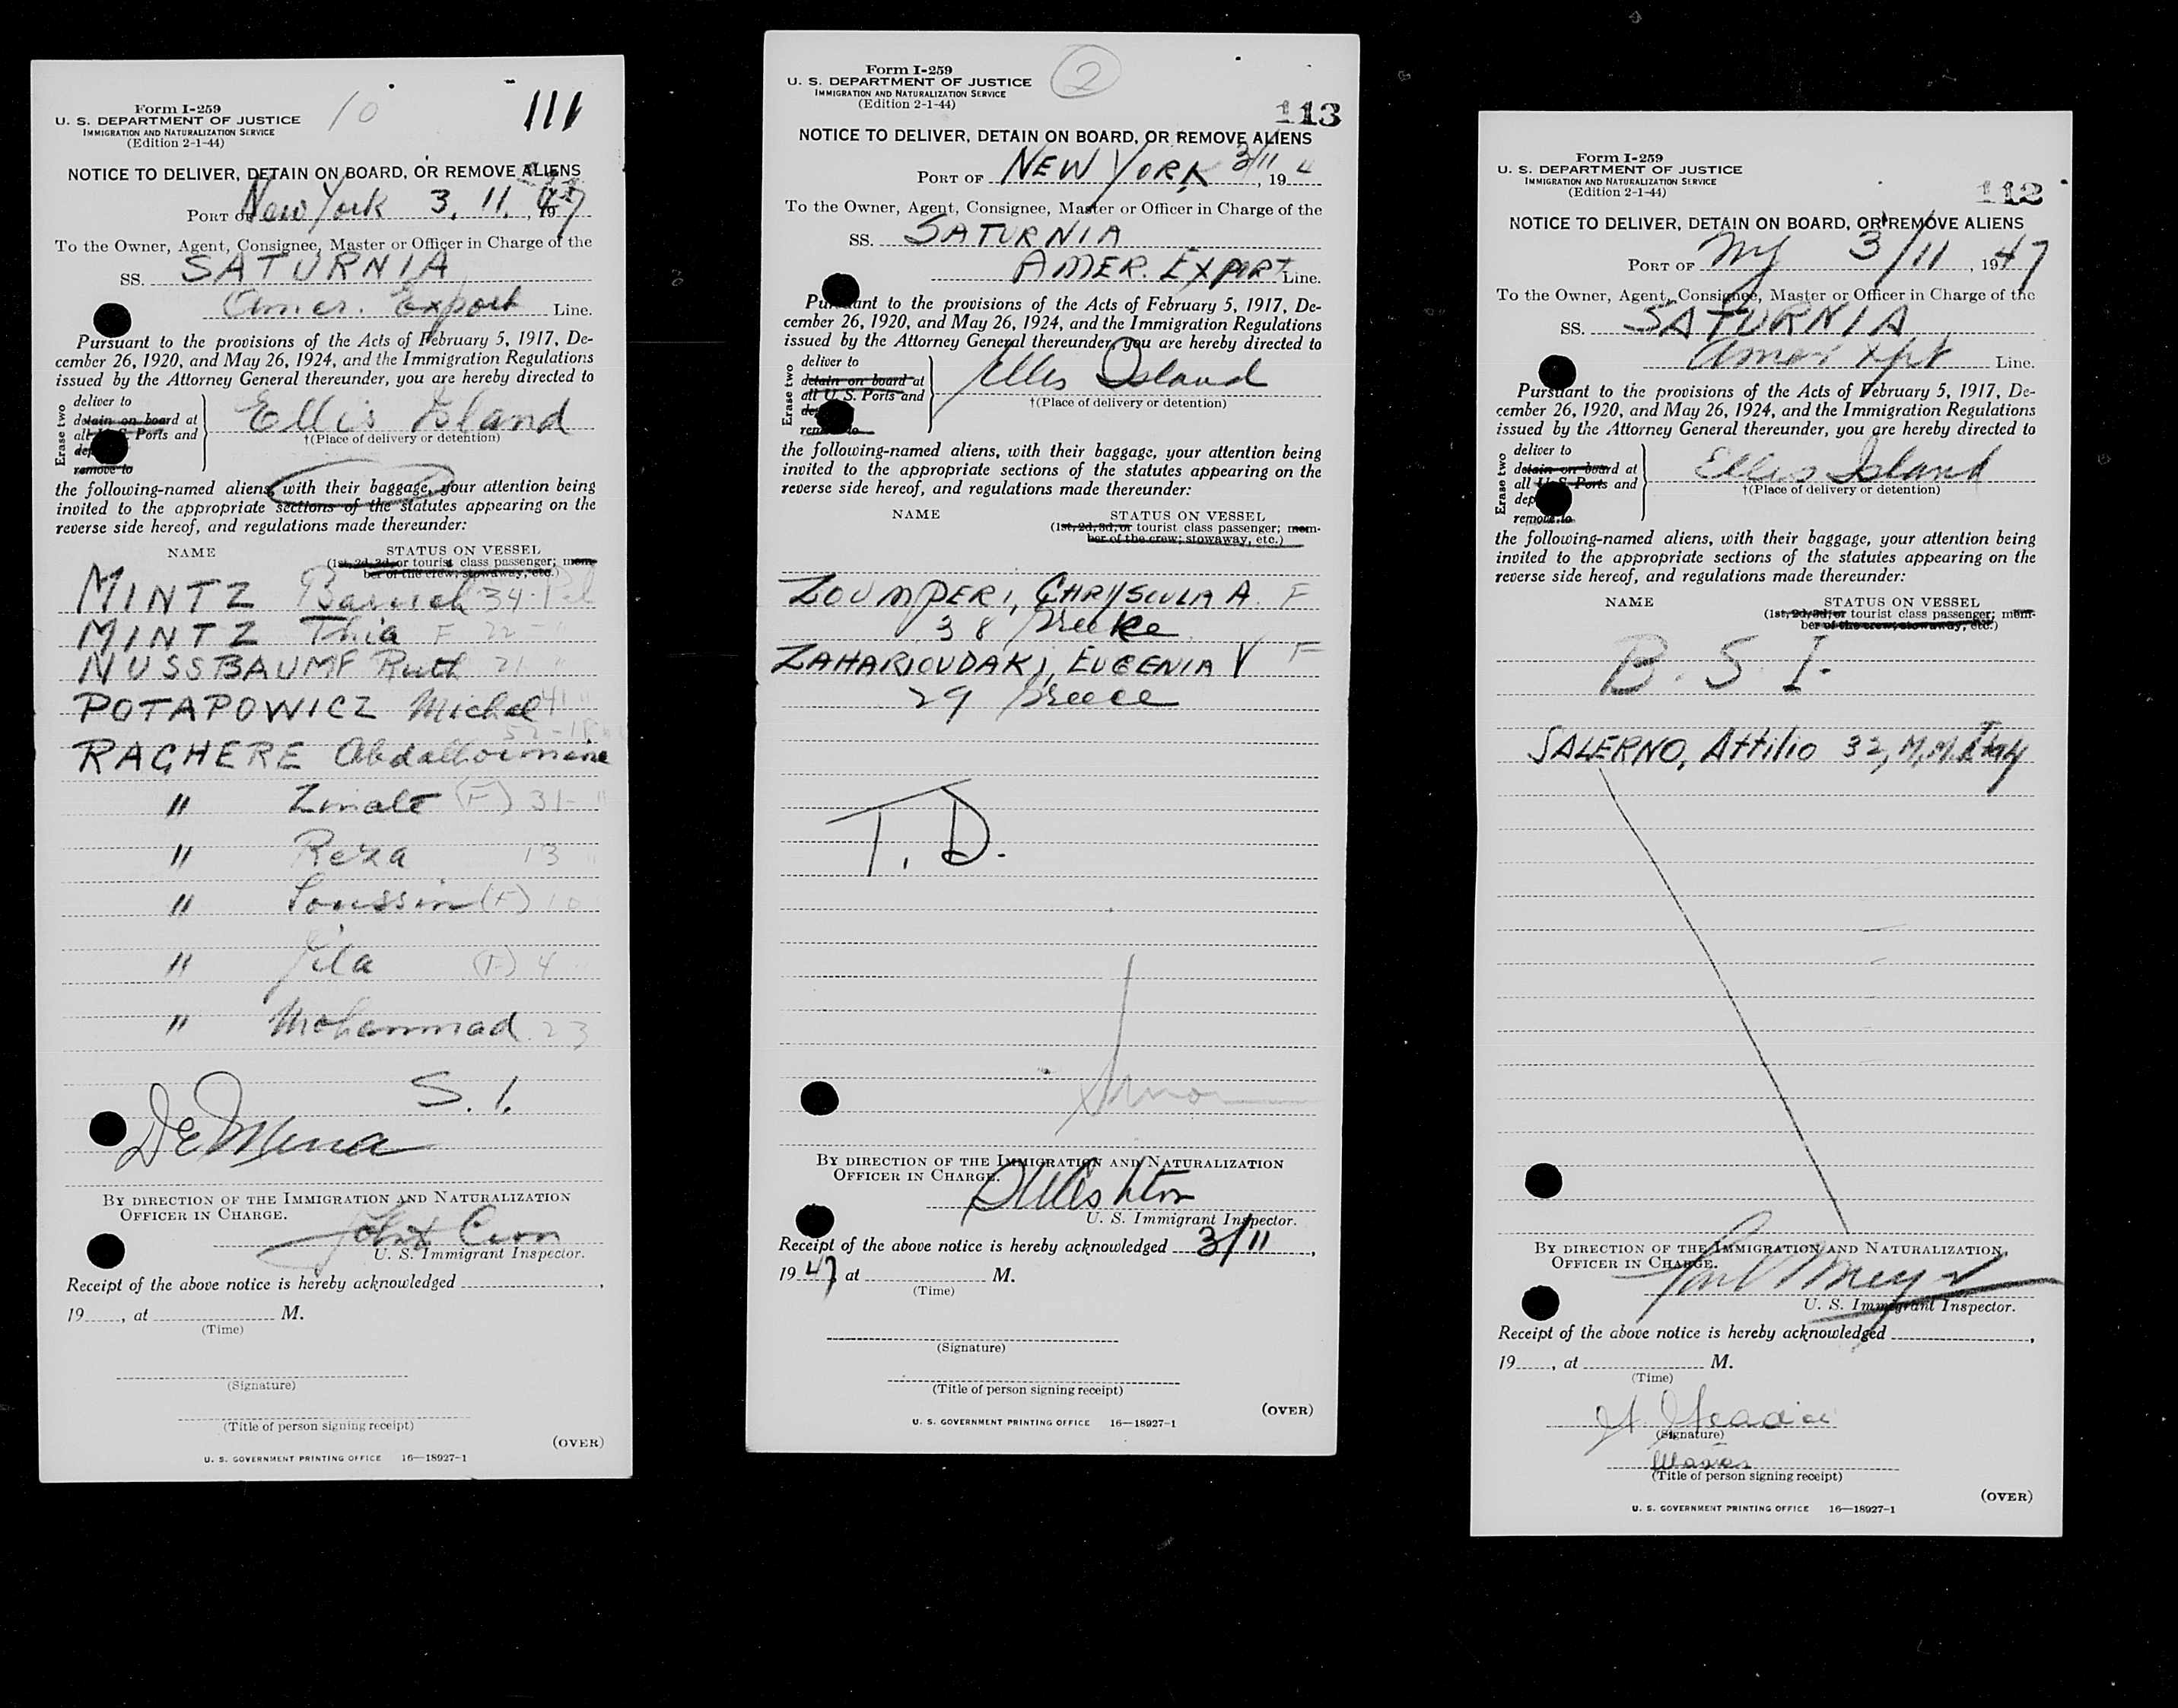 Form I-259
U. S. DEPARTMENT OF JUSTICE
IMMIGRATION AND NATURALIZATION SERVICE
(Edition 2-1-44)
10
111
NOTICE TO DELIVER, DETAIN ON BOARD, OR REMOVE ALIENS
PORT OF New York 3. 11. 1947
To the Owner, Agent, Consignee, Master or Officer in Charge of the
SS. SATURNIA
Amer. Export Line.
Pursuant to the provisions of the Acts of February 5, 1917, De-
cember 26, 1920, and May 26, 1924, and the Immigration Regulations
issued by the Attorney General thereunder, you are hereby directed to
Erase two
deliver to
detain on board at
all U. S. Ports and
remove to
Ellis Island
†(Place of delivery or detention)
the following-named aliens, with their baggage, your attention being
invited to the appropriate sections of the statutes appearing on the
reverse side hereof, and regulations made thereunder:
NAME STATUS ON VESSEL
(1st, 2d, 3d, or tourist class passenger; mem-
ber of the crew; stowaway, etc.)
MINTZ Baruch 34
MINTZ Thia F 22 "
NUSSBAUMF Ruth 21 "
POTAPOWICZ Michal 41 "
RACHERE
" (F) 31 "
" Reza 13 "
" (F) 10
" (F) 4
" Mohammad 23
S. I.
BY DIRECTION OF THE IMMIGRATION AND NATURALIZATION
OFFICER IN CHARGE.
U. S. Immigrant Inspector.
Receipt of the above notice is hereby acknowledged ,
19 , at M.
(Time)
(Signature)
(Title of person signing receipt)
(OVER)
U. S. GOVERNMENT PRINTING OFFICE 16—18927-1
Form I-259
U. S. DEPARTMENT OF JUSTICE
IMMIGRATION AND NATURALIZATION SERVICE
(Edition 2-1-44)
2
113
NOTICE TO DELIVER, DETAIN ON BOARD, OR REMOVE ALIENS
PORT OF NEW YORK 3/11, 194
To the Owner, Agent, Consignee, Master or Officer in Charge of the
SS. SATURNIA
AMER. EXPORT Line.
Pursuant to the provisions of the Acts of February 5, 1917, De-
cember 26, 1920, and May 26, 1924, and the Immigration Regulations
issued by the Attorney General thereunder, you are hereby directed to
Erase two
deliver to
detain on board at
all U. S. Ports and
remove to
Ellis Island
†(Place of delivery or detention)
the following-named aliens, with their baggage, your attention being
invited to the appropriate sections of the statutes appearing on the
reverse side hereof, and regulations made thereunder:
NAME STATUS ON VESSEL
(1st, 2d, 3d, or tourist class passenger; mem-
ber of the crew; stowaway, etc.)
ZOUMPERI, CHRYSCULA A. F
38
ZAHARIOUDAKI, EUGENIA V F
29 Greece
T. D.
BY DIRECTION OF THE IMMIGRATION AND NATURALIZATION
OFFICER IN CHARGE.
U. S. Immigrant Inspector.
Receipt of the above notice is hereby acknowledged 3/11,
1947, at M.
(Time)
(Signature)
(Title of person signing receipt)
(OVER)
U. S. GOVERNMENT PRINTING OFFICE 16—18927-1
Form I-259
U. S. DEPARTMENT OF JUSTICE
IMMIGRATION AND NATURALIZATION SERVICE
(Edition 2-1-44)
112
NOTICE TO DELIVER, DETAIN ON BOARD, OR REMOVE ALIENS
PORT OF NY 3/11, 1947
To the Owner, Agent, Consignee, Master or Officer in Charge of the
SS. SATURNIA
Amer Xprt Line.
Pursuant to the provisions of the Acts of February 5, 1917, De-
cember 26, 1920, and May 26, 1924, and the Immigration Regulations
issued by the Attorney General thereunder, you are hereby directed to
Erase two
deliver to
detain on board at
all U. S. Ports and
remove to
Ellis Island
†(Place of delivery or detention)
the following-named aliens, with their baggage, your attention being
invited to the appropriate sections of the statutes appearing on the
reverse side hereof, and regulations made thereunder:
NAME STATUS ON VESSEL
(1st, 2d, 3d, or tourist class passenger; mem-
ber of the crew; stowaway, etc.)
B. S. I.
SALERNO, Attilio 32, M, M. Italy
BY DIRECTION OF THE IMMIGRATION AND NATURALIZATION
OFFICER IN CHARGE.
U. S. Immigrant Inspector.
Receipt of the above notice is hereby acknowledged ,
19 , at M.
(Time)
(Signature)
(Title of person signing receipt)
(OVER)
U. S. GOVERNMENT PRINTING OFFICE 16—18927-1